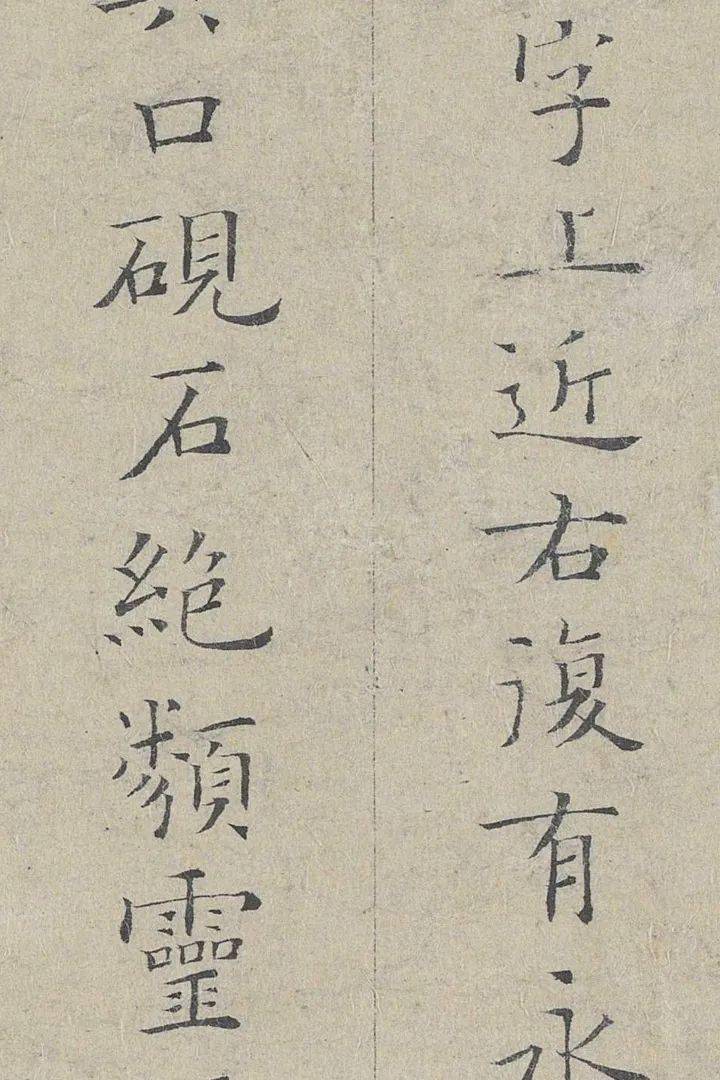 字上近右復有永
口硯石絶類靈